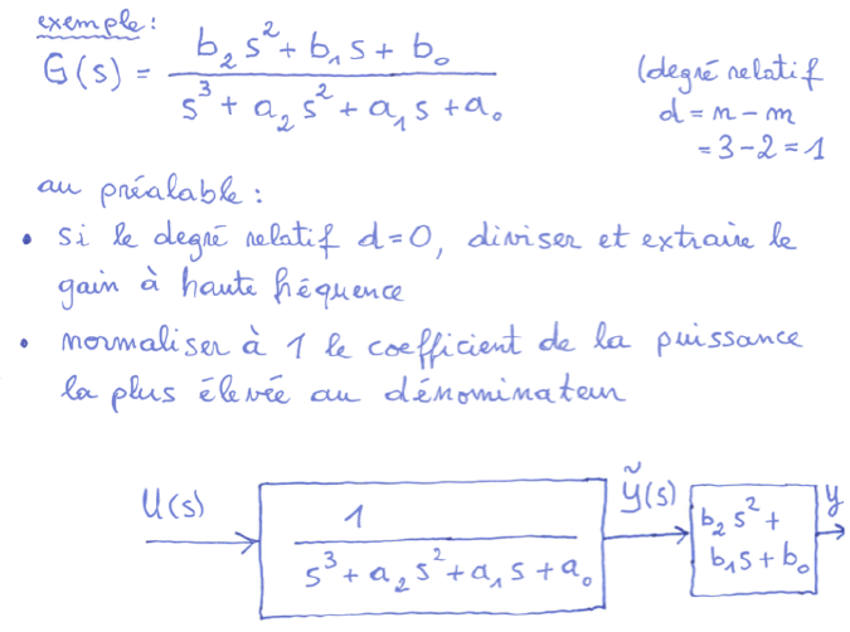 exemple :
G(s) = (b₂s² + b₁s + b₀) / (s³ + a₂s² + a₁s + a₀)
(degré relatif
d = n - m
= 3 - 2 = 1
au préalable :
• si le degré relatif d=0, diviser et extraire le
gain à haute fréquence
• normaliser à 1 le coefficient de la puissance
la plus élevée au dénominateur
U(s)
1 / (s³ + a₂s² + a₁s + a₀)
ỹ(s)
b₂s² +
b₁s + b₀
y